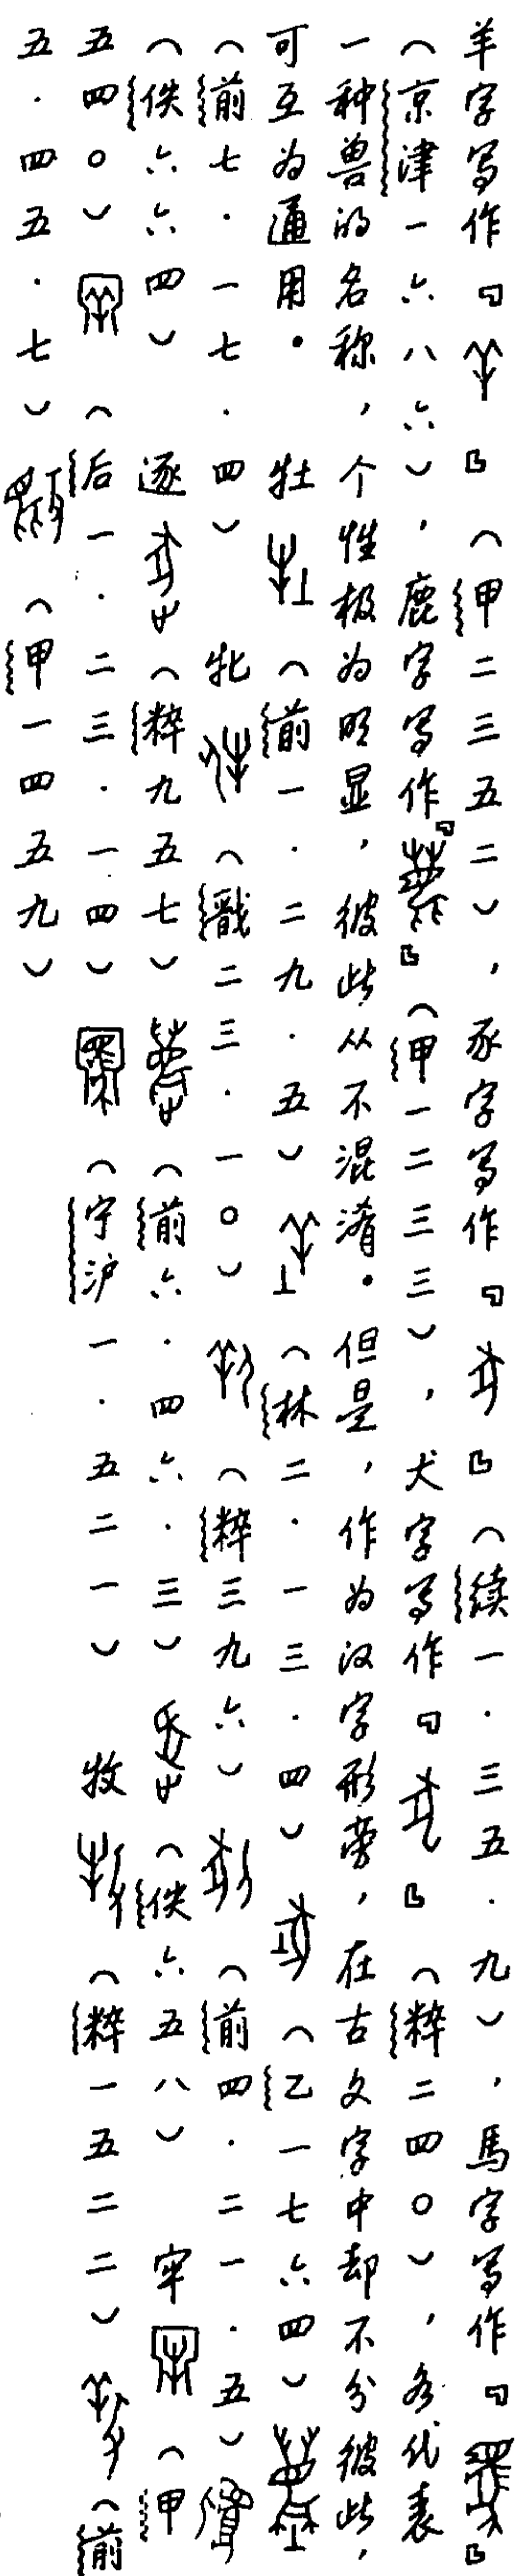 羊字写作﹃﹄（甲二三五二），豕字写作﹃﹄（续一·三五·九），馬字写作﹃﹄
（京津一六八六），鹿字写作﹃﹄（甲一二三三），犬字写作﹃﹄（粹二四〇），各代表
一种兽的名称，个性极为明显，彼此从不混淆。但是，作为汉字形旁，在古文字中却不分彼此，
可互为通用。牡（前一·二九·五）（林二·一三·四）（乙一七六四）
（前七·一七·四）牝（戬二三·一〇）（粹三九六）（前四·二一·五）
（佚六六四）逐（粹九五七）（前六·四六·三）（佚六五八）牢（甲
五四〇）（后一·二三·一四）（宁沪一·五二一）牧（粹一五二二）（前
五·四五·七）（甲一四五九）